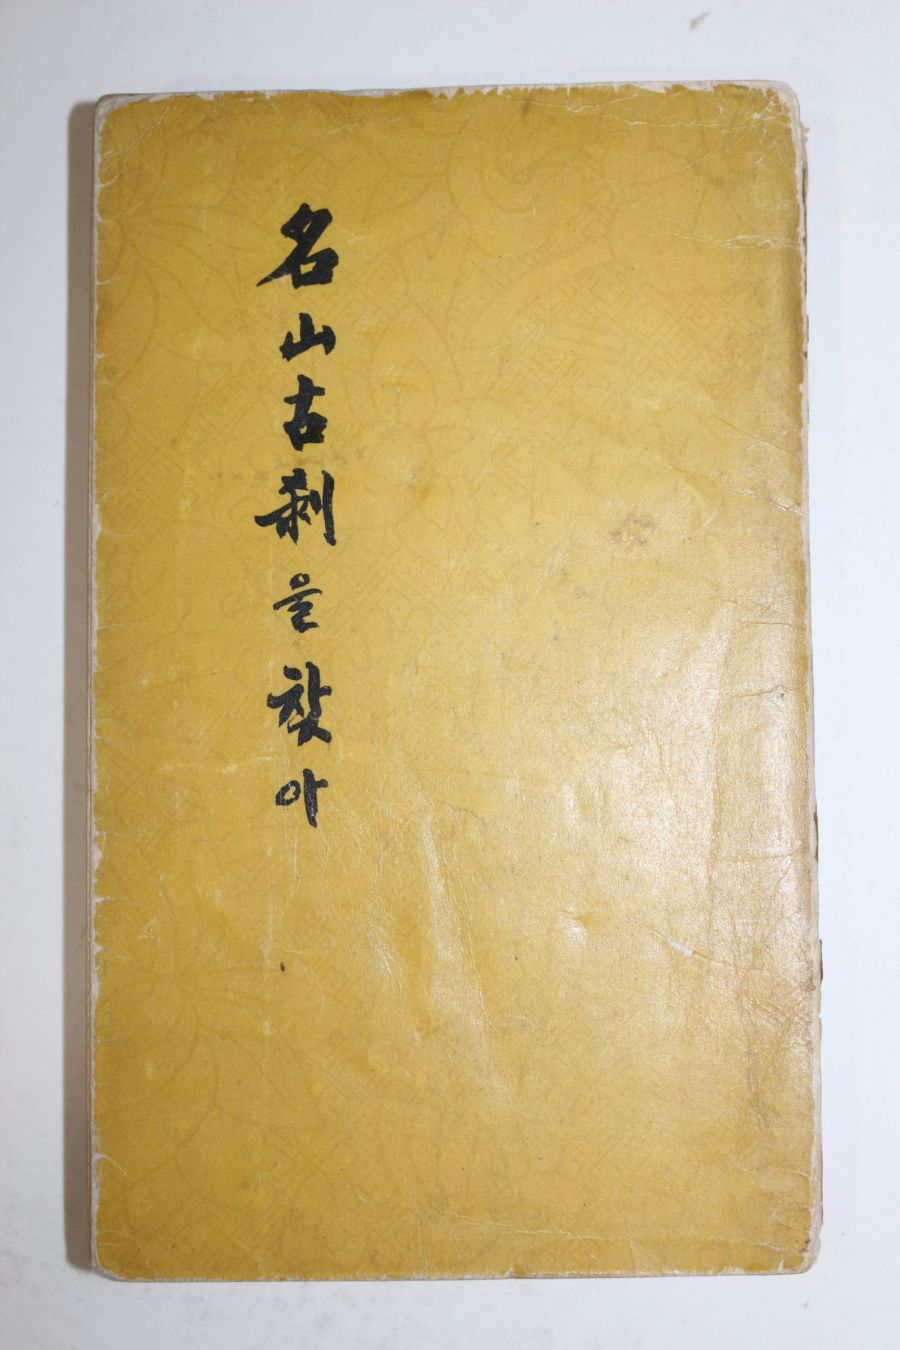 名山古刹을 찾아